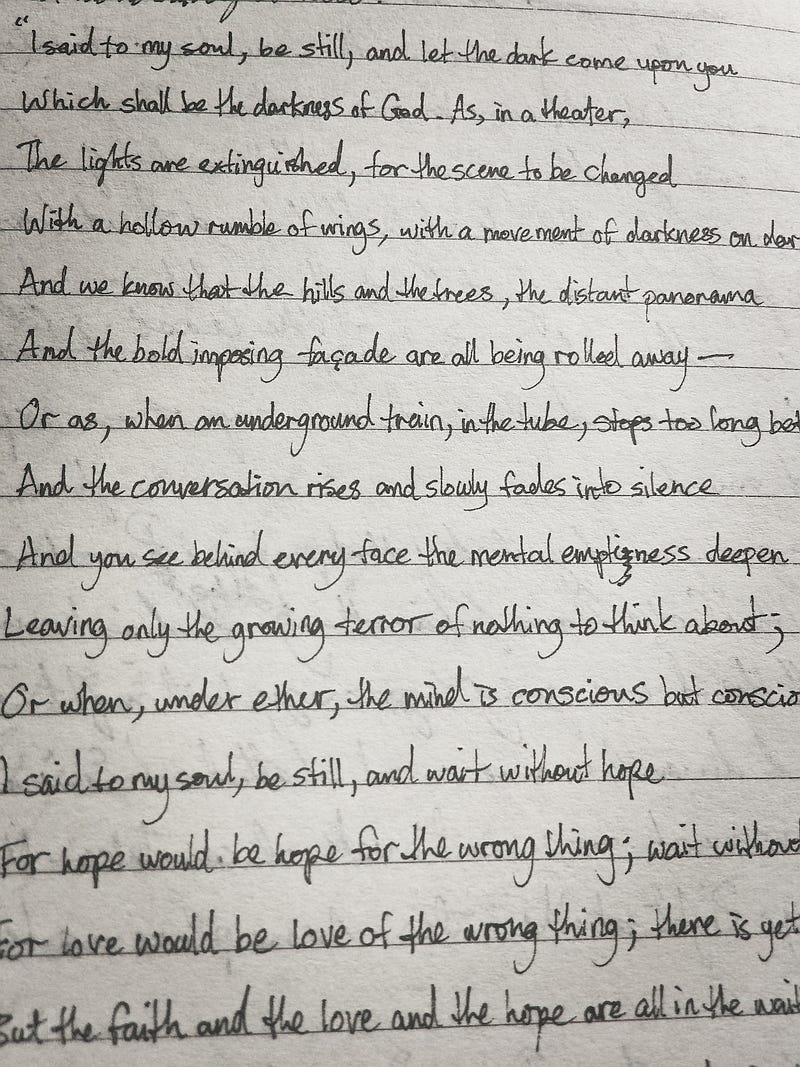 "I said to my soul, be still, and let the dark come upon you
Which shall be the darkness of God. As, in a theater,
The lights are extinguished, for the scene to be changed
With a hollow rumble of wings, with a movement of darkness on dar
And we know that the hills and the trees, the distant panorama
And the bold imposing façade are all being rolled away —
Or as, when an underground train, in the tube, stops too long bet
And the conversation rises and slowly fades into silence
And you see behind every face the mental emptiness deepen
Leaving only the growing terror of nothing to think about;
Or when, under ether, the mind is conscious but conscio
I said to my soul, be still, and wait without hope
For hope would be hope for the wrong thing; wait withou
For love would be love of the wrong thing; there is yet
But the faith and the love and the hope are all in the wait